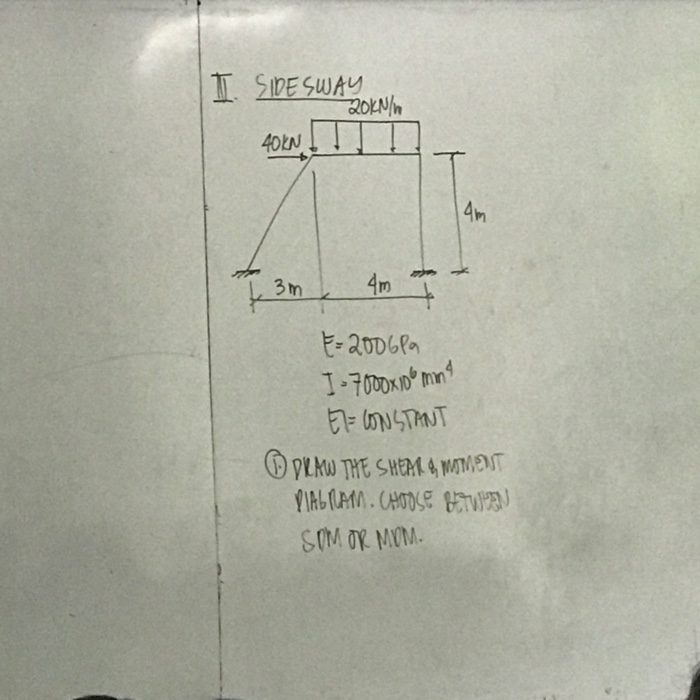 II. SIDESWAY
20KN/m
40KN
4m
3m 4m
E=200GPa
I=7000x10⁶ mm⁴
EI=CONSTANT
① DRAW THE SHEAR & MOMENT
DIAGRAM. CHOOSE BETWEEN
SDM OR MDM.